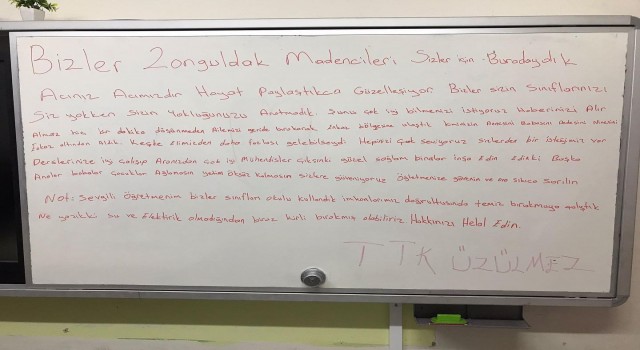 Bizler Zonguldak Madencileri Sizler için Buradaydık
Acınız Acımızdır Hayat Paylaştıkca Güzelleşiyor Bizler sizin Sınıflarınızı
Siz yokken Sizin Yokluğunuzu Aratmadık. Şunu çok iyi bilmenizi istiyoruz Haberinizi Alır
Almaz hiç bir dakika düşünmeden Ailemizi geride bırakarak bölgesine ulaştık kiminizin Annesini Babasını
altından Aldık. Keşke Elimizden daha fazlası gelebilseydi Hepinizi çok seviyoruz sizlerden bir isteğimiz var
Derslerinize iyi çalışıp Aranızdan çok iyi Mühendisler çıksınki güzel sağlam binalar inşa Edin Edinki Başka
Analar babalar çocuklar Ağlamasın yetim öksüz kalmasın sizlere güveniyoruz Öğretmenize güvenin ve ona sıkıca Sarılın
Not: Sevgili Öğretmenim bizler sınıfları okulu kullandık imkanlarımız doğrultusunda temiz bırakmaya çalıştık
Ne yazıkki su ve Elektirik olmadığından biraz kirli bırakmış olabiliriz Hakkınızı Helal Edin.
TTK ÜZÜLMEZ